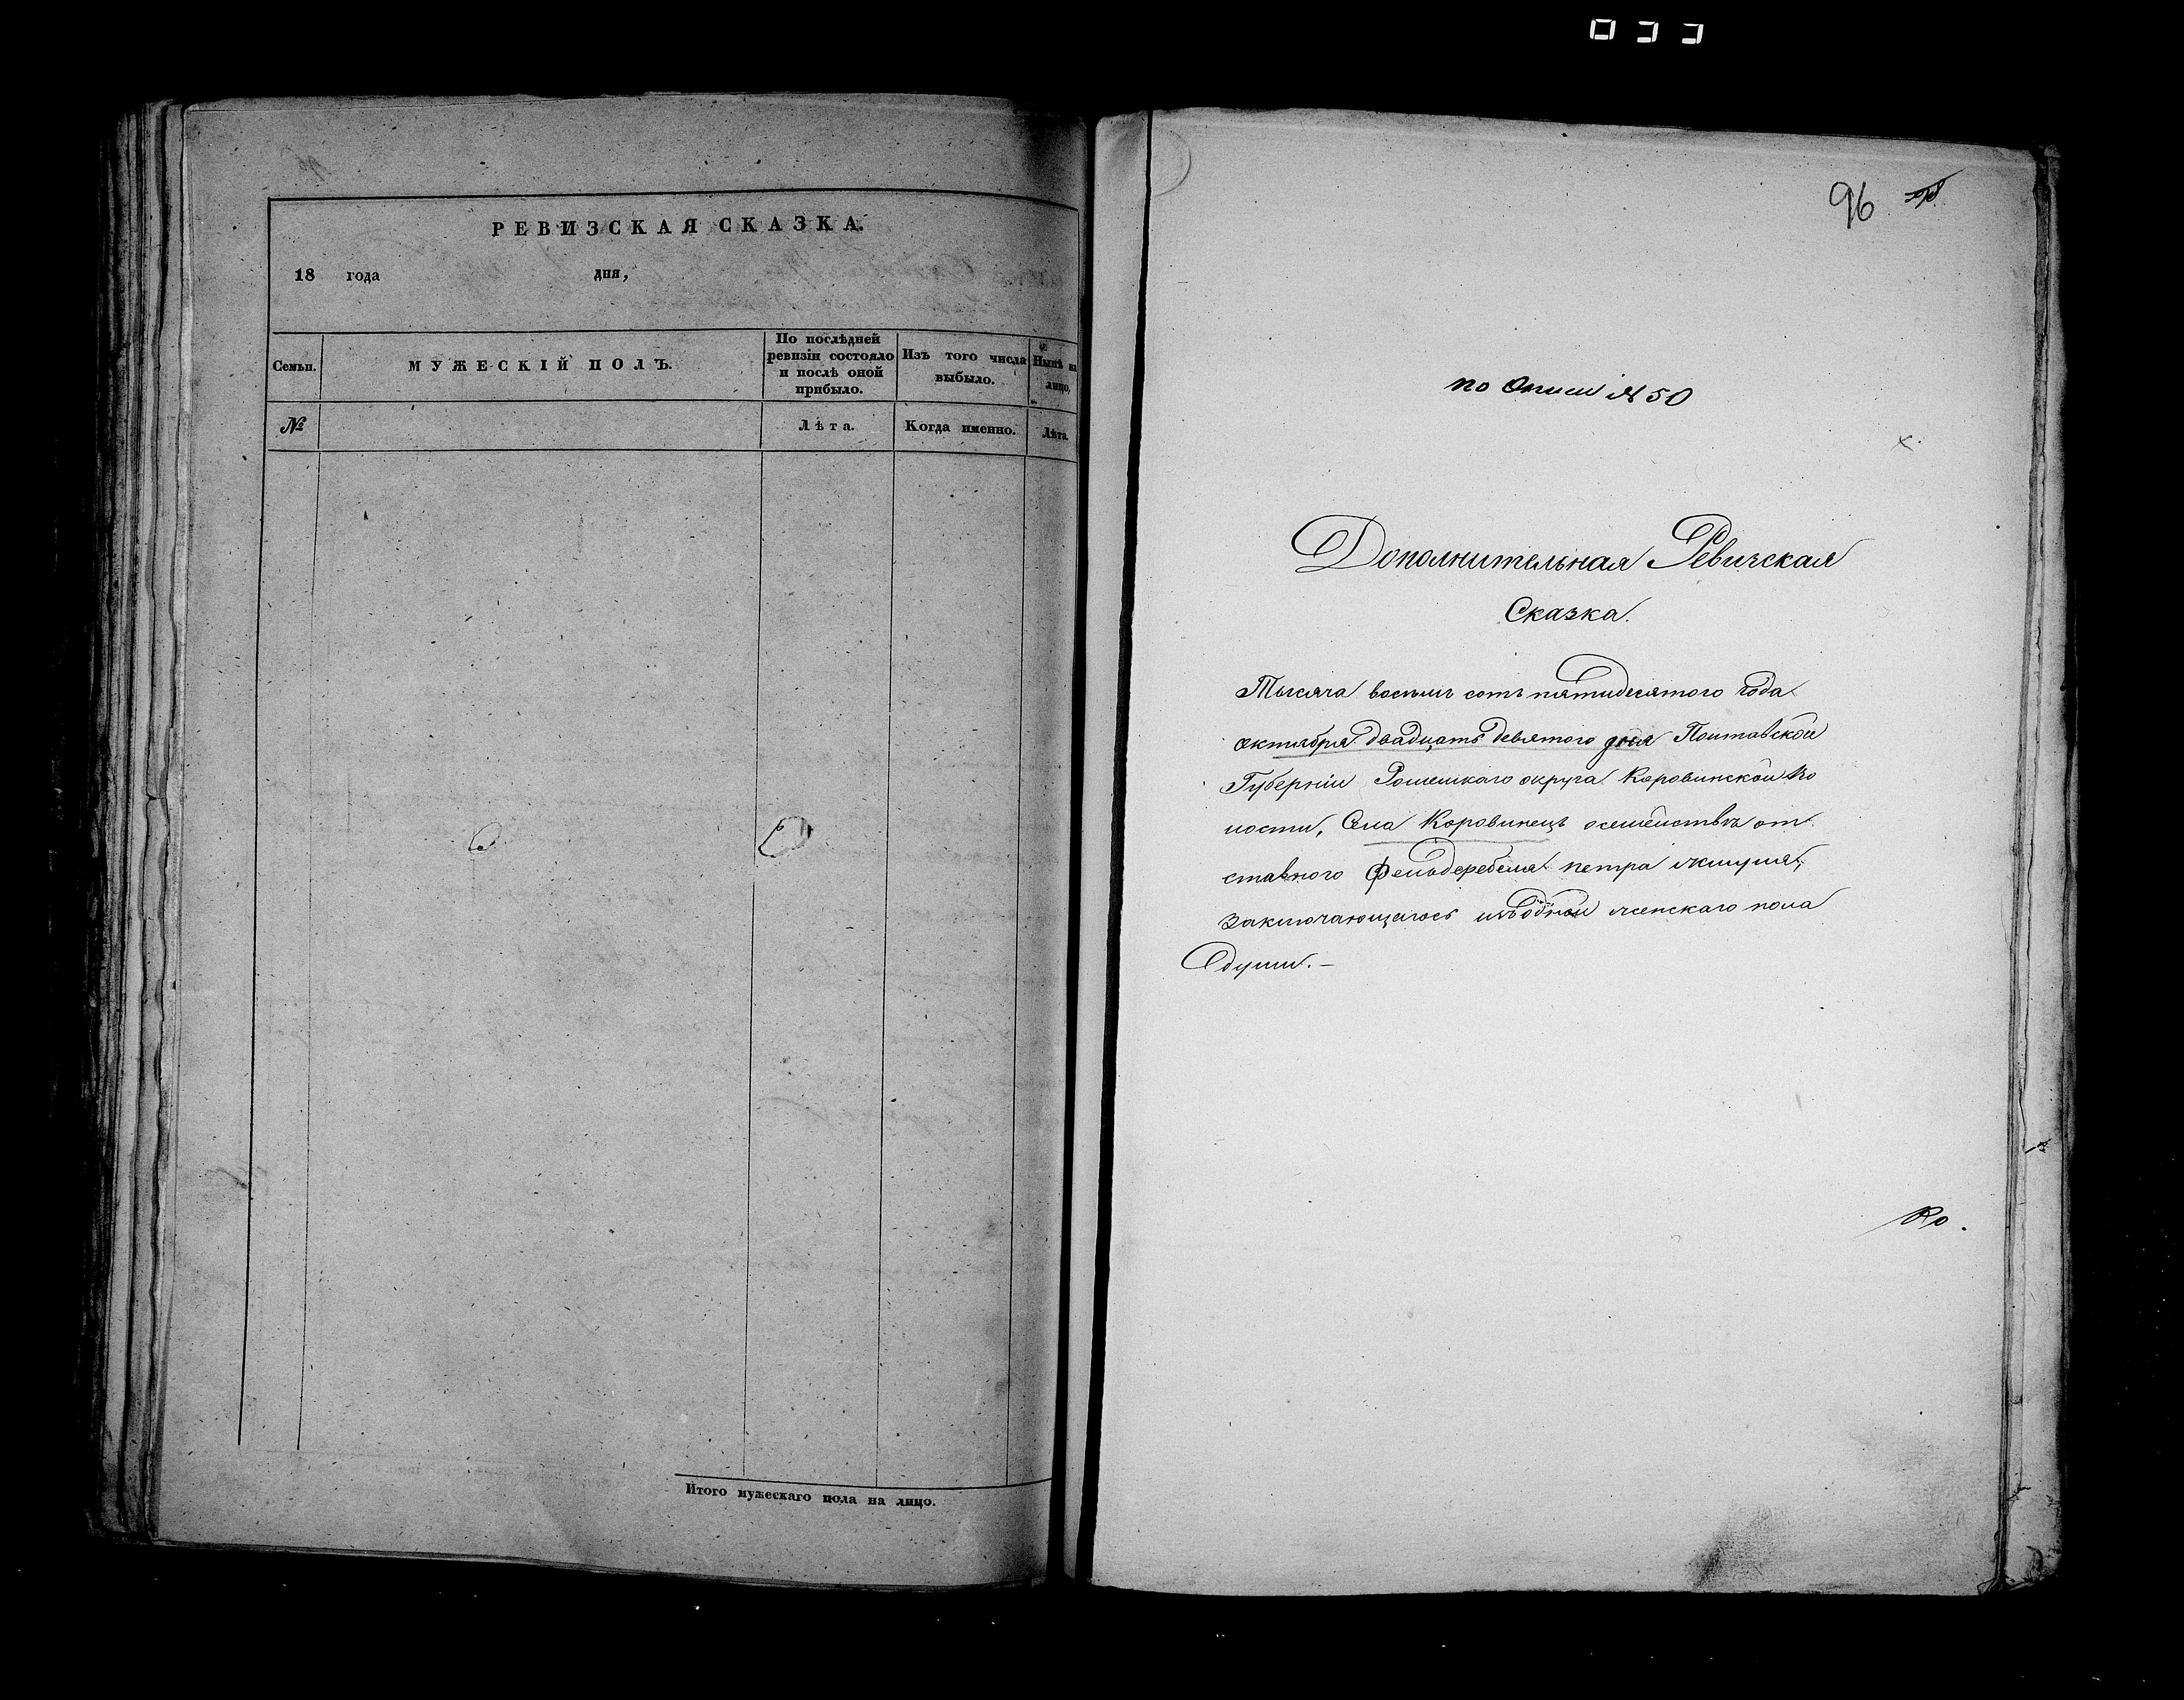 033
РЕВИЗСКАЯ СКАЗКА.
18 года дня,
Семьи. МУЖЕСКІЙ ПОЛЪ. По послѣдней ревизіи состояло и послѣ оной прибыло. Изъ того числа выбыло. Нынѣ на лицо.
№ Лѣта. Когда именно. Лѣта.
Итого мужескаго пола на лицо.
96
по Описи № 50
Дополнительная Ревизская
Сказка.
Тысяча восемь сотъ пятидесятого года
октября двадцать девятого дня Полтавской
Губерніи Роменскаго округа Коровинской Во
лости, Села Коровинецъ осемействѣ от
ставного Фельдфебеля петра
заключающагося изъ одной женскаго пола
души.-
Ко.